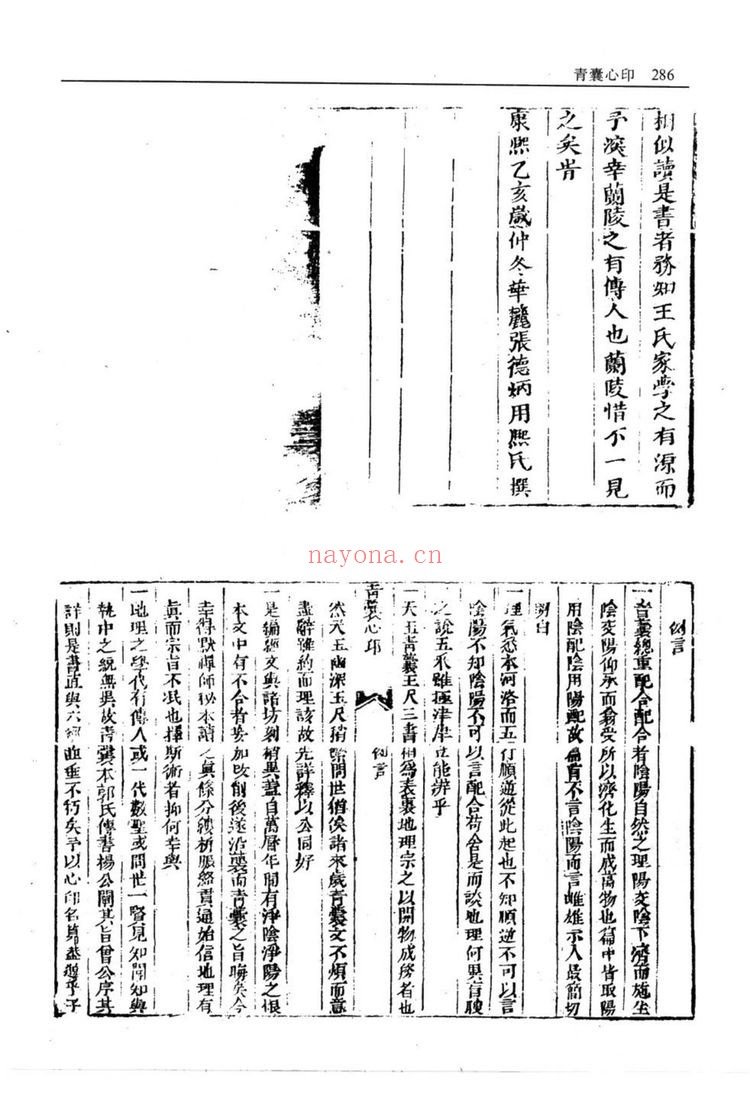 青囊心印 286
相似讀是書者務知王氏家學之有源而
予深幸蘭陵之有傳人也蘭陵惜不一見
之矣峕
康熙乙亥歲仲冬華麓張德炳用熙氏撰
nayona.cn
例言
一青囊總重配合配合者陰陽自然之理陽交陰下濟而施生
陰交陽仰承而翕受所以濟化生而成萬物也篇中皆取陽
用陰配陰用陽配故篇首不言陰陽而言雌雄示人最簡切
明白
一理氣悉本河洛而五行順逆從此起也不知順逆不可以言
陰陽不知陰陽不可以言配合苟舍是而談地理何異盲瞍
之說五采雖極津岸豈能辨乎
一天玉青囊玉尺三書相為表裏地理宗之以開物成務者也
青囊心印 例言
然天玉幽深玉尺稍 問世僧俟諸來歲青囊文不煩而意
盡辭雖約而理該故先詳釋以公同好
一是編經文與諸坊刻稍異蓋自萬曆年間有淨陰淨陽之恨
本文中有不合者妄加改削後遂沿襲而青囊之旨晦矣今
幸得默禪師秘本讀之其條分縷析脈絡貫通始信地理有
真而宗旨不泯也擇斯術者抑何幸與
一地理之學代有傳人或一代數聖或間世一賢見知聞知與
執中之統無異故青囊本郭氏傳書楊公闡其旨曾公序其
詳則是書直與六經並垂不朽矣予以心印名篇蓋 乎子